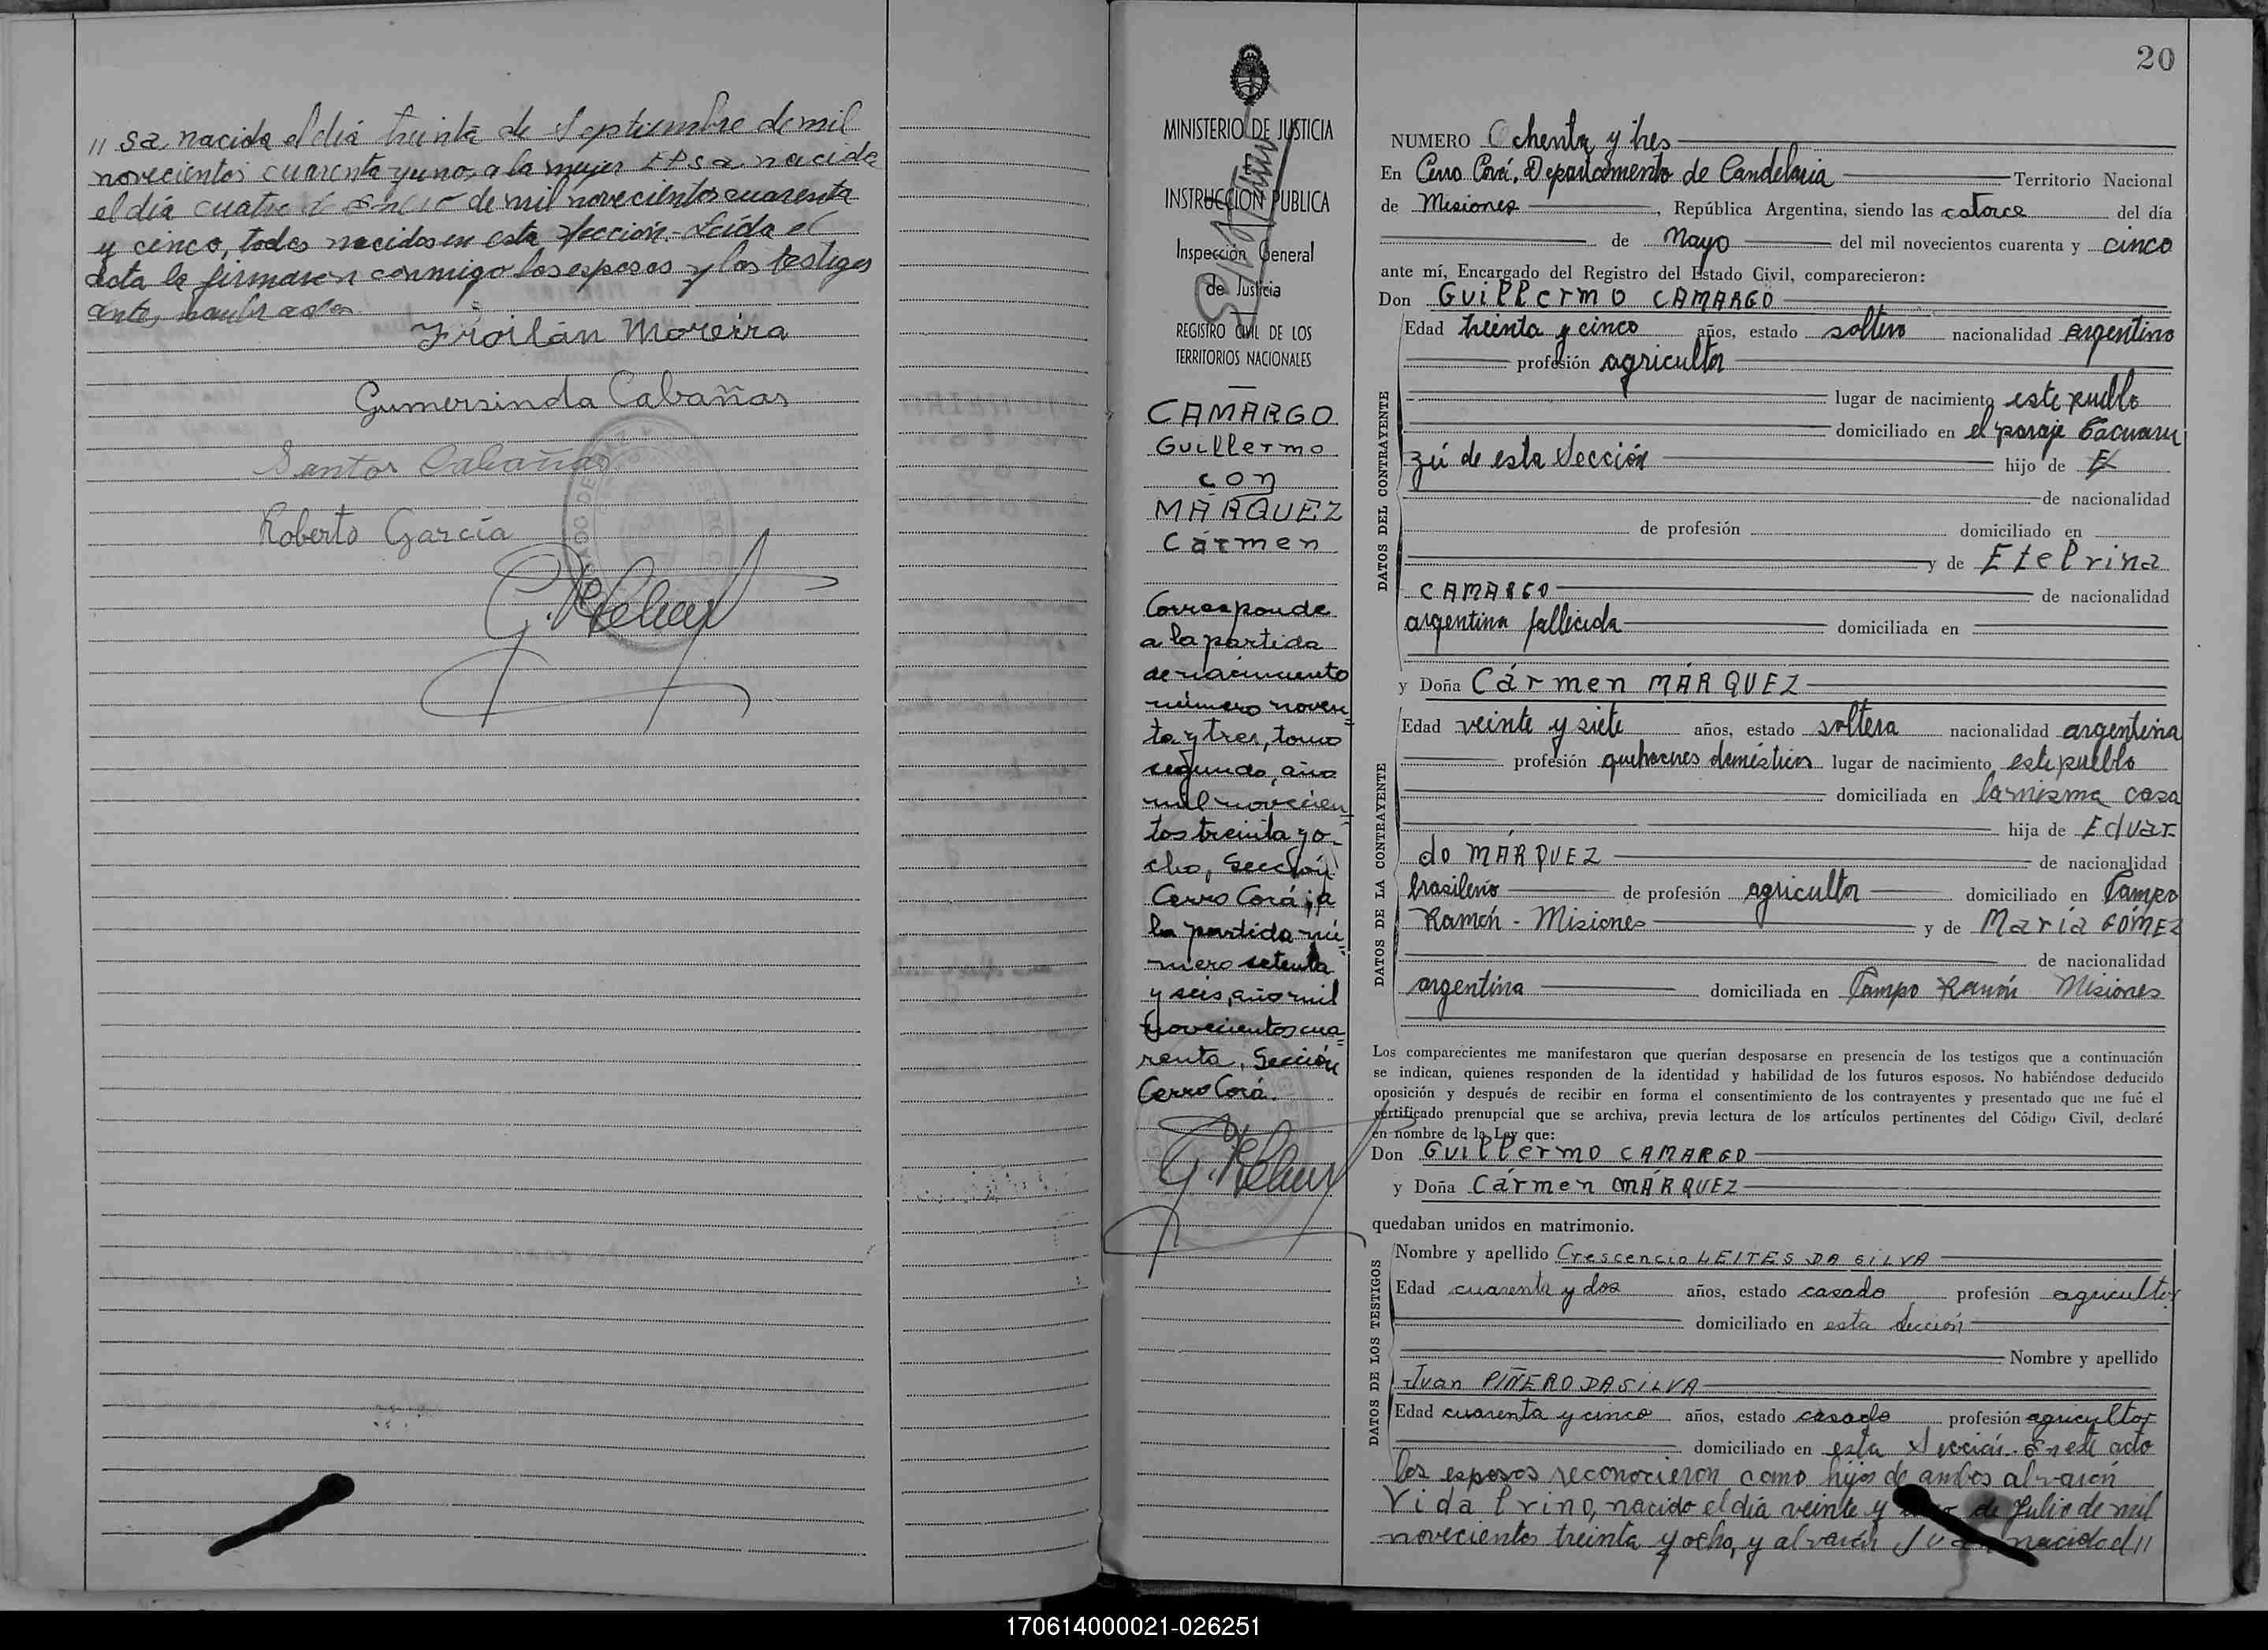 " sa, nacida el día treinta de Septiembre de mil
novecientos cuarenta y uno, a la mujer Elsa, nacida
el día cuatro de Enero de mil novecientos cuarenta
y cinco, todos nacidos en esta Sección.- Leída el
acta la firmaron conmigo los esposos y los testigos
antes nombrados.
Froilán Moreira
Gumersinda Cabañas
Santos Cabañas
Roberto García
MINISTERIO DE JUSTICIA
E
INSTRUCCION PUBLICA
Inspección General
de Justicia
REGISTRO CIVIL DE LOS
TERRITORIOS NACIONALES
CAMARGO
Guillermo
con
MÁRQUEZ
Cármen
Corresponde
a la partida
de nacimiento
número noven=
ta y tres, tomo
segundo, año
mil novecien=
tos treinta y o-
cho, Sección
Cerro Corá; a
la partida nú=
mero setenta
y seis, año mil
novecientos cua=
renta, Sección
Cerro Corá.
20
NUMERO Ochenta y tres
En Cerro Corá, Departamento de Candelaria Territorio Nacional
de Misiones, República Argentina, siendo las catorce del día
de Mayo del mil novecientos cuarenta y cinco
ante mí, Encargado del Registro del Estado Civil, comparecieron:
Don Guillermo CAMARGO
DATOS DEL CONTRAYENTE
Edad treinta y cinco años, estado soltero nacionalidad argentino
profesión agricultor
lugar de nacimiento este pueblo
domiciliado en el paraje Tacuaru
zú de esta Sección hijo de
de nacionalidad
de profesión domiciliado en
y de Etelvina
CAMARGO de nacionalidad
argentina fallecida domiciliada en
y Doña Cármen MÁRQUEZ
DATOS DE LA CONTRAYENTE
Edad veinte y siete años, estado soltera nacionalidad argentina
profesión quehaceres domésticos lugar de nacimiento este pueblo
domiciliada en la misma casa
hija de Eduar
do MÁRQUEZ de nacionalidad
brasileño de profesión agricultor domiciliado en Campo
Ramón - Misiones y de María GÓMEZ
de nacionalidad
argentina domiciliada en Campo Ramón Misiones
Los comparecientes me manifestaron que querían desposarse en presencia de los testigos que a continuación
se indican, quienes responden de la identidad y habilidad de los futuros esposos. No habiéndose deducido
oposición y después de recibir en forma el consentimiento de los contrayentes y presentado que me fué el
certificado prenupcial que se archiva, previa lectura de los artículos pertinentes del Código Civil, declaré
en nombre de la Ley que:
Don Guillermo CAMARGO
y Doña Cármen MÁRQUEZ
quedaban unidos en matrimonio.
DATOS DE LOS TESTIGOS
Nombre y apellido Crescencio LEITES DA SILVA
Edad cuarenta y dos años, estado casado profesión agricultor
domiciliado en esta Sección
Nombre y apellido
Juan PIÑERO DA SILVA
Edad cuarenta y cinco años, estado casado profesión agricultor
domiciliado en esta Sección. En este acto
los esposos reconocieron como hijos de ambos al varón
Vidalvino, nacido el día veinte y de Julio de mil
novecientos treinta y ocho, y al varón nacido el "
170614000021-026251